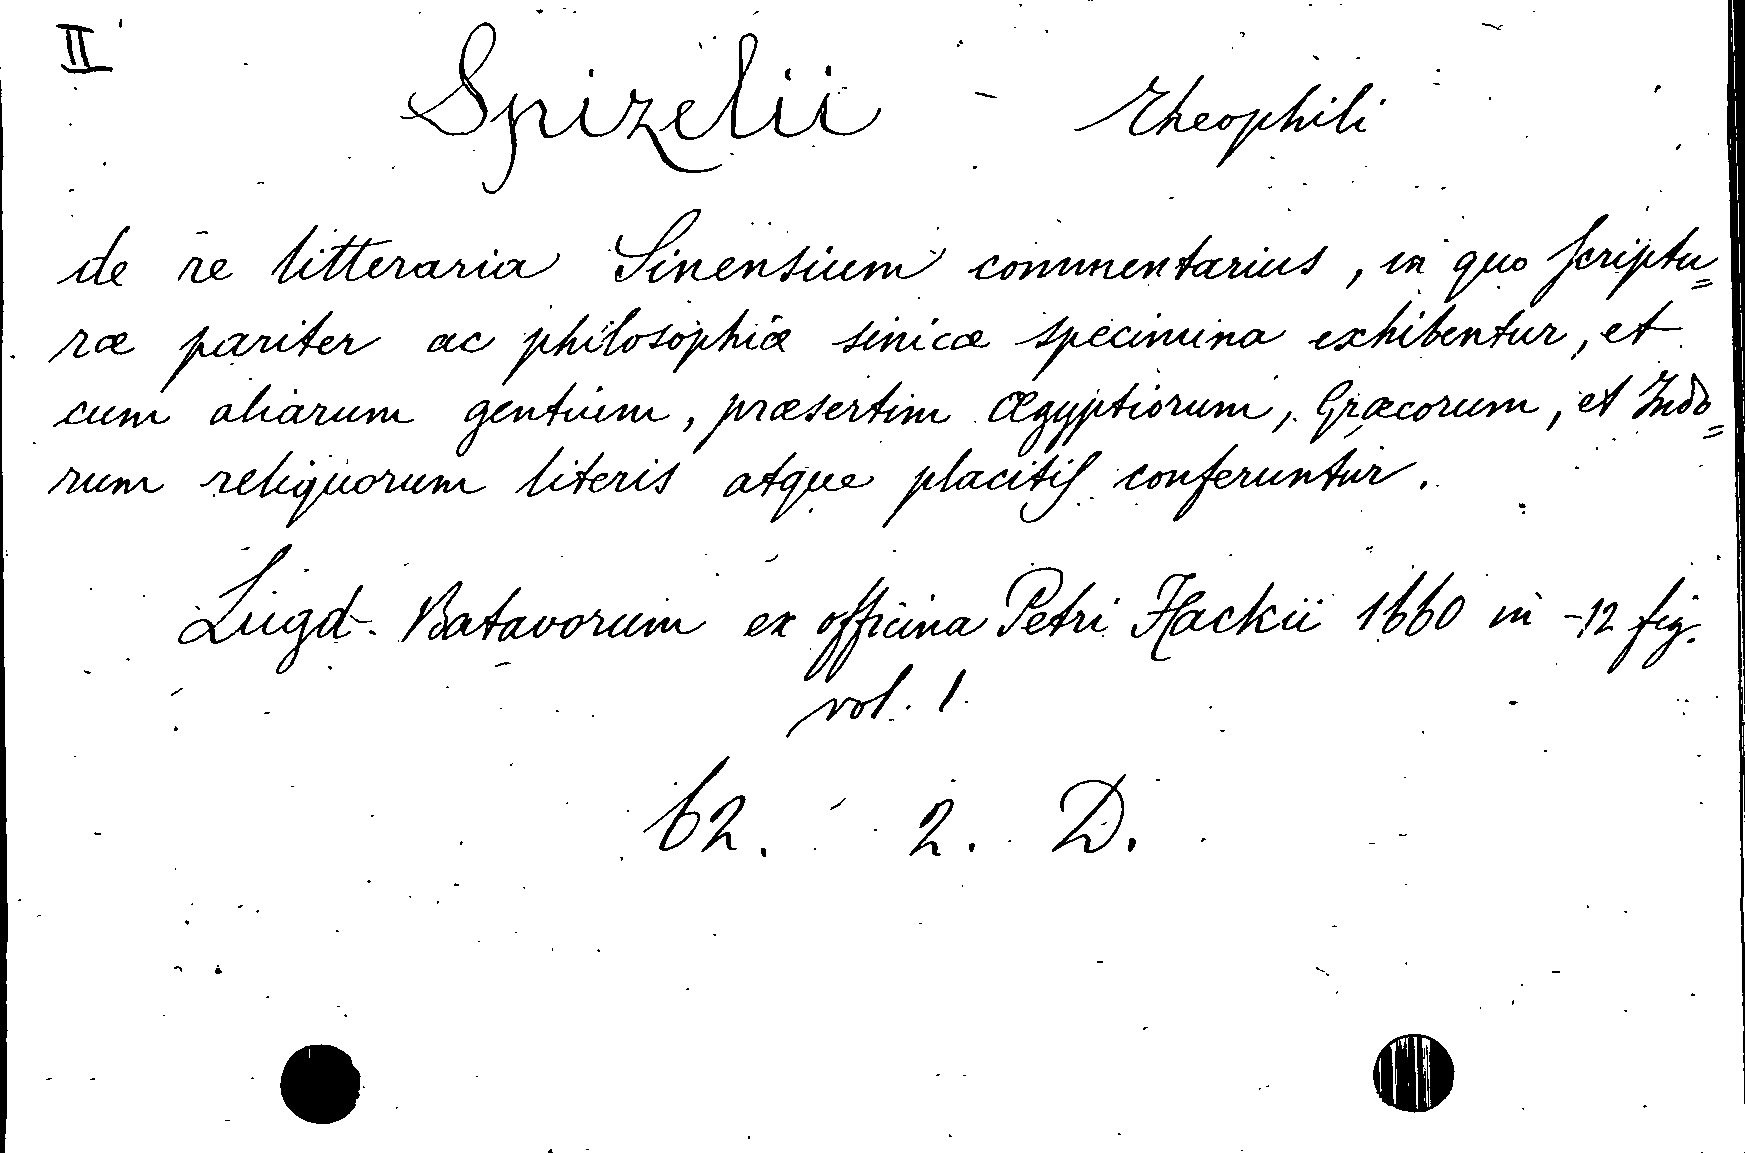 II
Spizelii - Theophili
de re litteraria Sinensium commentarius, in quo scriptu=
ræ pariter ac philosophiæ sinicæ specimina exhibentur, et
cum aliarum gentium, præsertim Ægyptiorum, Græcorum, et Indo=
rum reliquorum literis atque placitis conferuntur.
Lugd. Batavorum ex officina Petri Hackii 1660 in -12 fig.
vol. 1
62. 2. D.